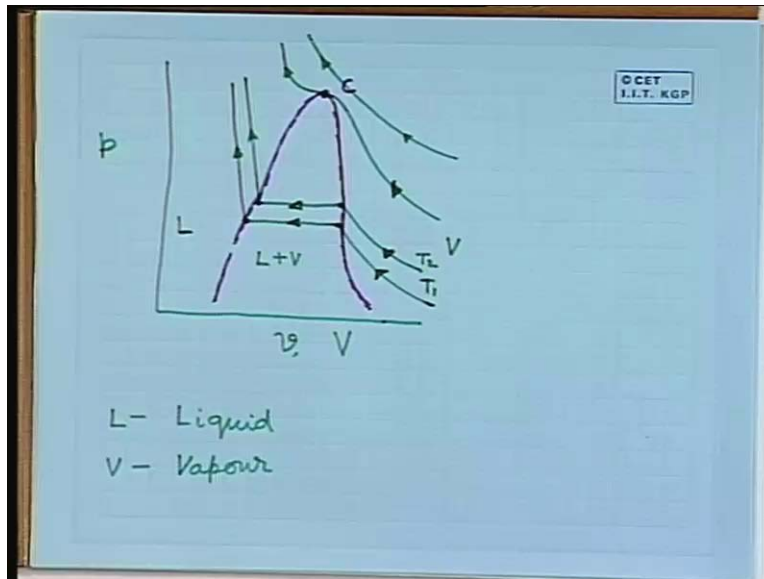 © CET
I.I.T. KGP
C
p
L
L+V
V
T2
T1
v, V
L - Liquid
V - Vapour